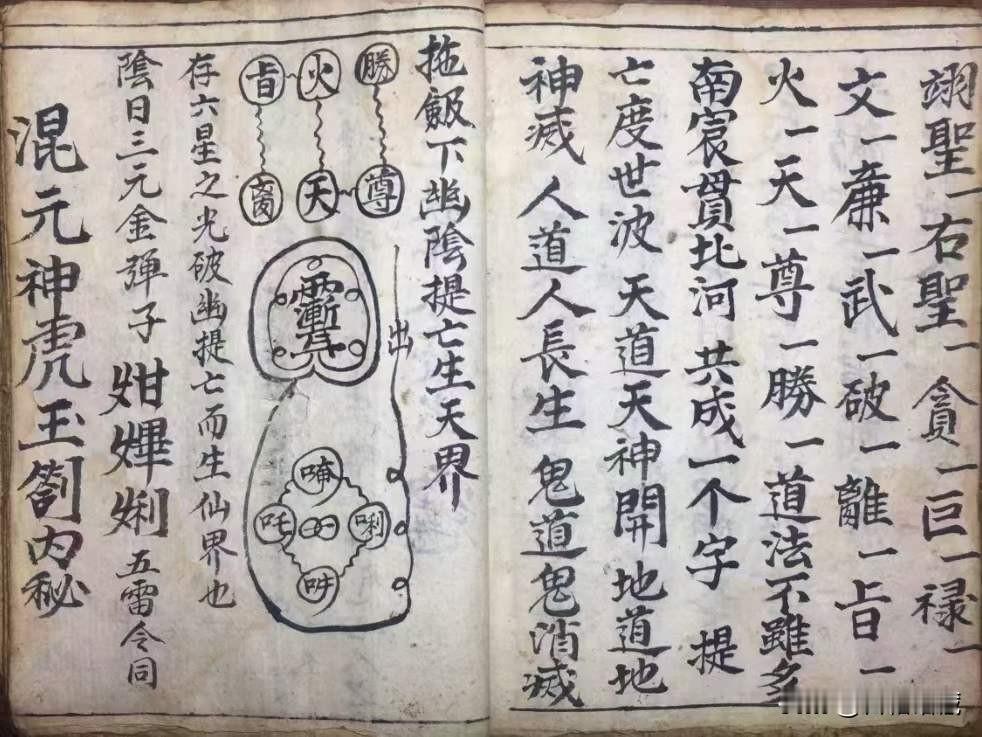 翊聖一右聖一貪一巨一禄一
文一廉一武一破一離一㫖一
火一天一尊一勝一道法不雖多
南宸貫比河 共成一个字 提
亡度世波 天道天神開 地道地
神滅 人道人長生 鬼道鬼消滅
拖飯下幽陰提亡生天界
勝 尊
火 天
㫖 离
出
唵
吒 唎
吽
存六星之光破幽提亡而生仙界也
陰日三元金彈子 五雷令同
混元神虎玉劄内秘